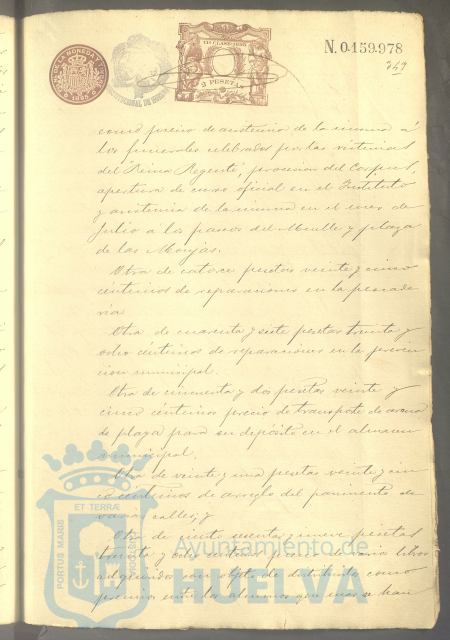 N. 0.159.978
349
11ª CLASE-1895
2 PESETAS
como precio de asistencia de la misma á
los funerales celebrados por las victimas
del "Reina Regente", procesion del Corpus,
apertura de curso oficial en el Instituto
y asistencia de la misma en el mes de
Julio a los paseos del Muelle y plaza
de las Monjas.
Otra de catorce pesetas veinte y cinco
céntimos de reparaciones en la pescade
ria.
Otra de cuarenta y siete pesetas treinta y
ocho céntimos de reparaciones en la
cion municipal.
Otra de cincuenta y dos pesetas veinte y
cinco céntimos precio de transporte de arena
de playa para su depósito en el almacen
municipal.
Otra de veinte y una pesetas veinte y cin
co céntimos de arreglo del pavimento de
varias calles; y
Otra de ciento y nueve pesetas
treinta y ocho varios libros
adquiridos con objeto de distribuirlos como
premios entre los alumnos que mas se han
PORTUS MARIS
ET TERRÆ
Ayuntamiento de
HUELVA